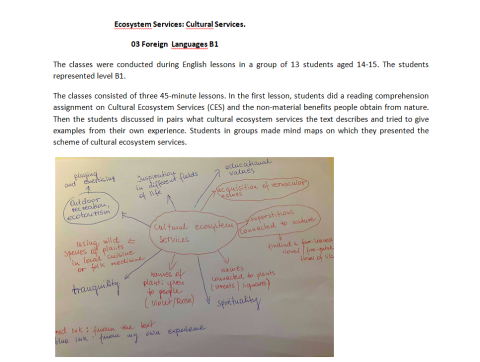 Ecosystem Services: Cultural Services.
03 Foreign Languages B1
The classes were conducted during English lessons in a group of 13 students aged 14-15. The students
represented level B1.
The classes consisted of three 45-minute lessons. In the first lesson, students did a reading comprehension
assignment on Cultural Ecosystem Services (CES) and the non-material benefits people obtain from nature.
Then the students discussed in pairs what cultural ecosystem services the text describes and tried to give
examples from their own experience. Students in groups made mind maps on which they presented the
scheme of cultural ecosystem services.
playing
and exercising
inspiration
in different fields
of life
educational
values
acquisition of vernacular
names
outdoor
recreation,
ecotourism
cultural ecosystem
services
superstitions
connected to nature
using wild
species of plants
in local cuisine
or folk medicine
names of
plants given
to people
(Violet/Rose)
names
connected to plants
(streets/squares)
tranquility
spirituality
red ink: from the text
blue ink: from my own experience